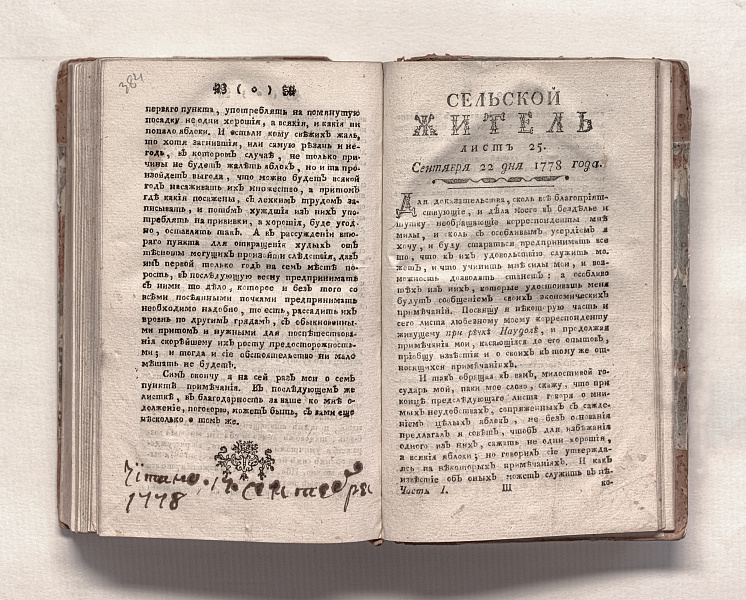 384
( о )
перваго пункта, употреблять на помянутую
посадку не одни хорошія, а всякія, и какія ни
попало яблоки. И естьли кому свѣжихъ жаль,
то хотя загнившія, или самую рѣзань и не-
годь, въ которомъ случаѣ, не только при-
чины не будетъ жалѣть яблокъ, но и та про-
изойдетъ выгода, что можно будетъ всякой
годъ насаживать ихъ множество, а притомъ
гдѣ какія посажены, съ легкимъ трудомъ за-
писывать, и потомъ хуждшія изъ нихъ упо-
треблять на прививки, а хорошія, буде угод-
но, оставлять такъ. А въ разсужденіи вто-
раго пункта для отвращенія худыхъ отъ
тѣсноты могущихъ произойти слѣдствія, давъ
имъ первой только годъ на семъ мѣстѣ по-
рость, въ послѣдующую весну предпринимать
съ ними то дѣло, которое и безъ того со
всѣми посѣянными почками предпринимать
необходимо надобно, то есть, разсадить ихъ
вровнь по другимъ грядамъ, съ обыкновенны-
ми притомъ и нужными для поспѣшествова-
нія скорѣйшему ихъ росту предосторожностя-
ми; и тогда и сіе обстоятельство ни мало
мѣшать не будетъ.
Симъ окончу а на сей разъ мои о семъ
пунктѣ примѣчанія. Въ послѣдующемъ же
листкѣ, въ благодарность за ваше ко мнѣ о-
долженіе, поговорю, можетъ быть, съ вами еще
нѣсколько о томъ же.
1778
СЕЛЬСКОЙ
ЖИТЕЛЬ
листъ 25.
Сентября 22 дня 1778 года.
Для доказательства, сколь всѣ благопріят-
ствующіе, и дѣла моего въ бездѣлье и
шутку необращающіе корреспонденты мнѣ
милы, и сколь съ особливымъ усердіемъ я
хочу, и буду стараться предпринимать все
то, что къ ихъ удовольствію служить мо-
жетъ, и что учинить мнѣ силы мои, и воз-
можность дозволять станетъ; а особливо
тѣхъ изъ нихъ, которые удостоивать меня
будутъ сообщеніемъ своихъ экономическихъ
примѣчаній. Посвящу я нѣкоторую часть и
сего листа любезному моему корреспонденту
живущему при рѣкѣ Наудолѣ, и продолжая
примѣчанія мои, касающіяся до его опытовъ,
пріобщу извѣстія и о своихъ къ тому же от-
носящихся примѣчаніяхъ.
И такъ обращая къ вамъ, милостивой го-
сударь мой, паки мое слово, скажу, что при
концѣ предслѣдующаго листа говоря о мни-
мыхъ неудобствахъ, сопряженныхъ съ сажде-
ніемъ цѣлыхъ яблокъ, не безъ основанія
предлагалъ я совѣтъ, чтобъ для избѣжанія
одного изъ нихъ, сажать не одни хорошія,
а всякія яблоки; но говорилъ сіе утвержда-
ясь на нѣкоторыхъ примѣчаніяхъ. И какъ
извѣстіе объ оныхъ можетъ служить въ нѣ-
Часть I. Ш ко-